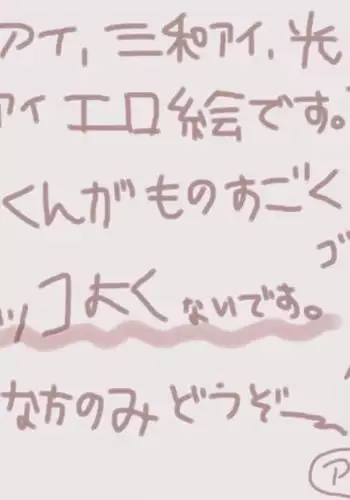 アイ,三和アイ,光
アイエロ絵です。
くんがものすごく
ゴ
ッコよくないです。
な方のみどうぞー
ア